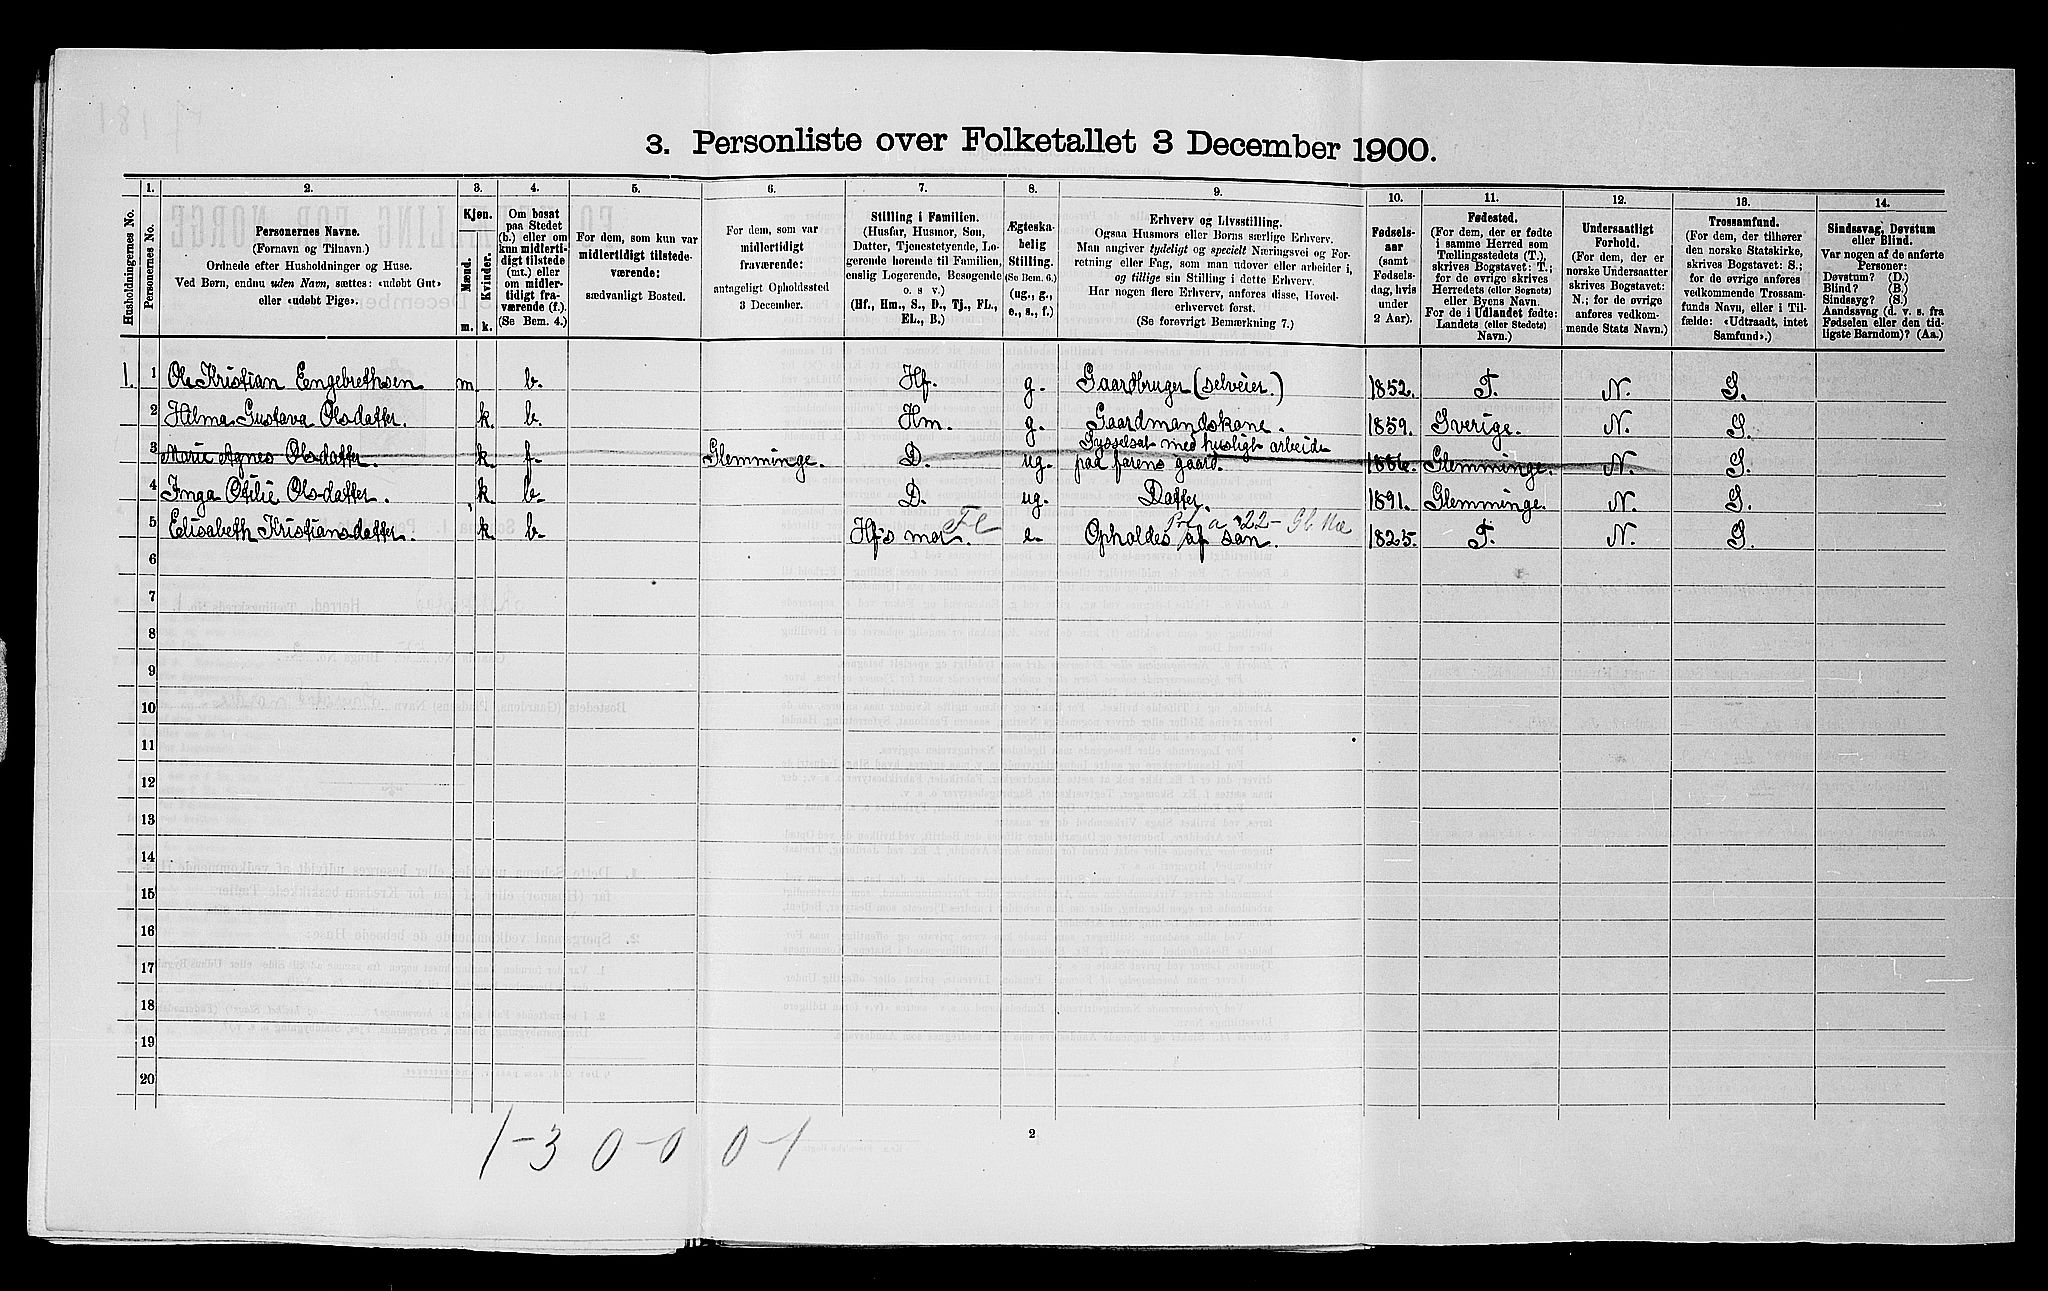 3. Personliste over Folketallet 3 December 1900.
1. 2. 3. 4. 5. 6. 7. 8. 9. 10. 11. 12. 13. 14.
Husholdningernes No.
Personernes No.
Personernes Navne.
(Fornavn og Tilnavn.)
Ordnede efter Husholdninger og Huse.
Ved Børn, endnu uden Navn, sættes: «udøbt Gut»
eller «udøbt Pige».
Kjøn.
Mænd.
Kvinder.
m. k.
Om bosat
paa Stedet
(b.) eller om
kun midlerti-
digt tilstede
(mt.) eller
om midler-
tidigt fra-
værende (f.).
(Se Bem. 4.)
For dem, som kun var
midlertidigt tilstede-
værende:
sædvanligt Bosted.
For dem, som var
midlertidigt
fraværende:
antageligt Opholdssted
3 December.
Stilling i Familien.
(Husfar, Husmor, Søn,
Datter, Tjenestetyende, Lo-
gerende hørende til Familien,
enslig Logerende, Besøgende
o. s v.)
(Hf., Hm., S., D., Tj., FL.,
EL., B.)
Ægteska-
belig
Stilling.
(Se Bem. 6.)
(ug., g.,
e., s., f.)
Erhverv og Livsstilling.
Ogsaa Husmors eller Børns særlige Erhverv.
Man angiver tydeligt og specielt Næringsvei og For-
retning eller Fag, som man udover eller arbeider i,
og tillige sin Stilling i dette Erhverv.
Har nogen flere Erhverv, anføres disse, Hoved-
erhvervet først.
(Se forøvrigt Bemærkning 7.)
Fødsels-
aar
(samt
Fødsels-
dag, hvis
under
2 Aar).
Fødested.
(For dem, der er fødte
i samme Herred som
Tællingsstedets (T.),
skrives Bogstavet: T.;
for de øvrige skrives
Herredets (eller Sognets)
eller Byens Navn.
For de i Udlandet fødte:
Landets (eller Stedets)
Navn.)
Undersaatligt
Forhold.
(For dem, der er
norske Undersaatter
skrives Bogstavet:
N.; for de øvrige
anføres vedkom-
mende Stats Navn.)
Trossamfund.
(For dem, der tilhører
den norske Statskirke,
skrives Bogstavet: S.;
for de øvrige anføres
vedkommende Trossam-
funds Navn, eller i Til-
fælde: «Udtraadt, intet
Samfund».)
Sindssvag, Døvstum
eller Blind.
Var nogen af de anførte
Personer:
Døvstum? (D.)
Blind? (B.)
Sindssyg? (S.)
Aandssvag (d. v. s. fra
Fødselen eller den tid-
ligste Barndom)? (Aa.)
1. 1 Ole Kristian Engebrethsen m. b. Hf. g. Gaardbruger (selveier.) 1852. T. N. S.
2 Hilma Gustava Olsdatter. k. b. Hm. g. Gaardmandskone. 1859. Sverige. N. S.
Sysselsat med husligt arbeide
3 Marie Agnes Olsdatter. k. f. Glemminge. D. ug. paa farens gaard. Glemminge. N. S.
4 Inga Otilie Olsdatter. k. b. D. ug. Datter. 1891. Glemminge. N. S.
Fl
5 Elisabeth Kristiansdatter. k. b. Hf's mor. e. Opholdes af søn. 1825. T. N. S.
6
7
8
9
10
11
12
13
14
15
16
17
18
19
20
1-3 0-0 0-1
2